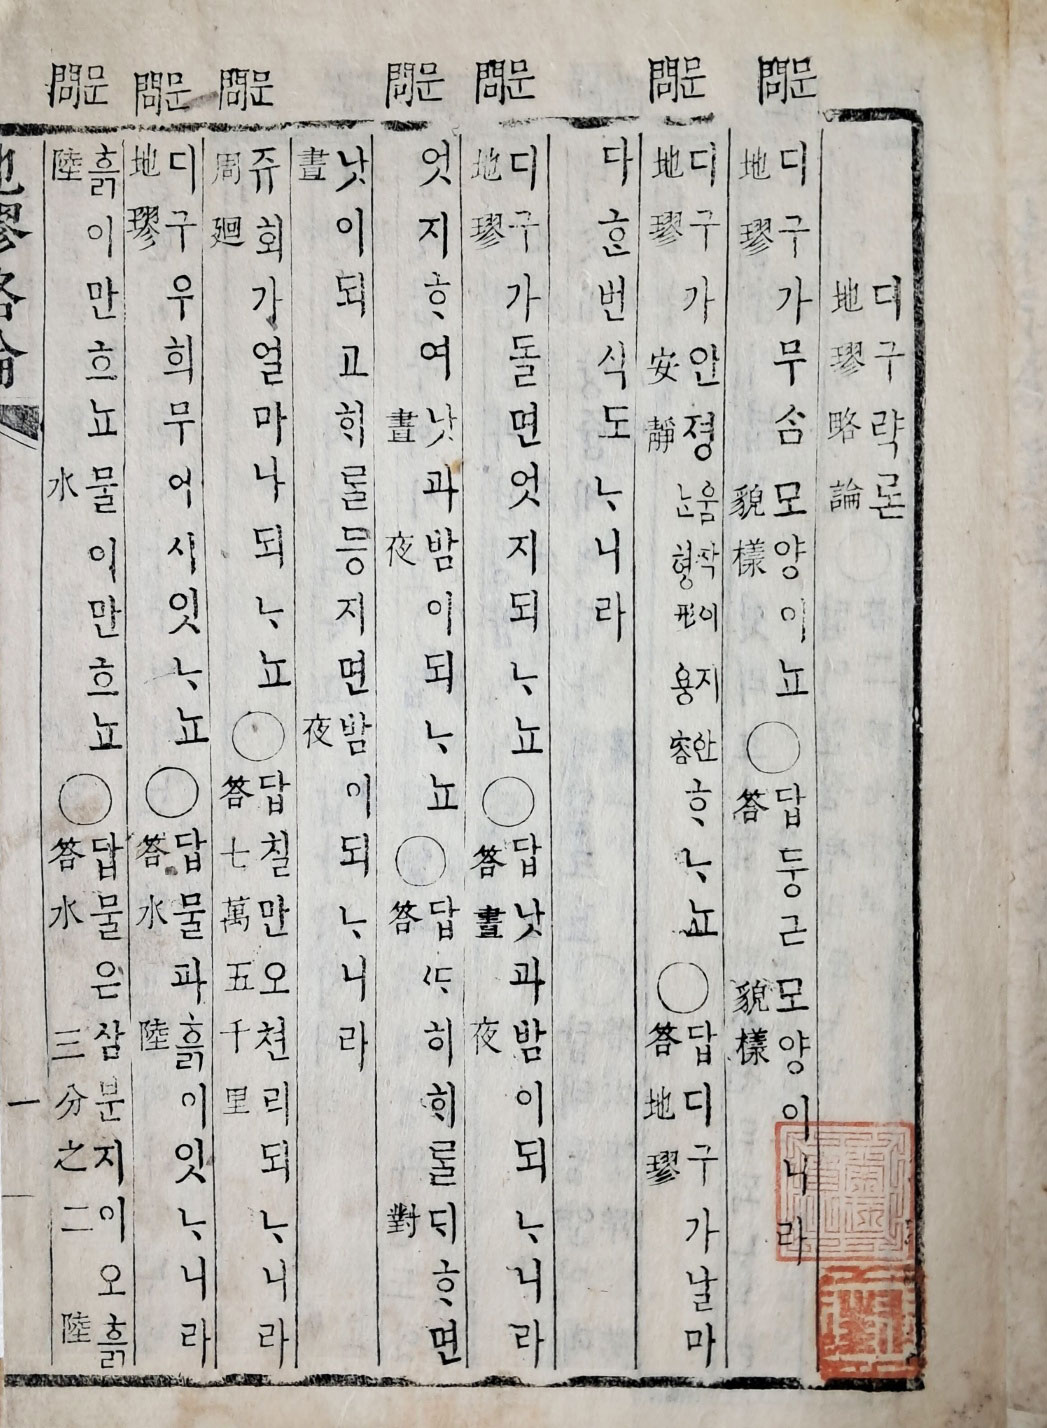 디구략론 地璆略論
문問 디구地璆가무솜모양貌樣이뇨○답答둥근모양貌樣이니라
문問 디구地璆가안졍安靜움작이지안ᄂᆞᆫ형形용容ᄒᆞᄂᆞ뇨○답答디구地璆가날마
다ᄒᆞᆫ번식도ᄂᆞ니라
문問 디구地璆가돌면엇지되ᄂᆞ뇨○답答낫晝과밤夜이되ᄂᆞ니라
문問 엇지ᄒᆞ여낫晝과밤夜이되ᄂᆞ뇨○답答ᄯᆞ히ᄒᆡ롤ᄃᆡ對ᄒᆞ면
낫晝이되고ᄒᆡ롤등지면밤夜이되ᄂᆞ니라
문問 쥬회周廻가얼마나되ᄂᆞ뇨○답答칠七만萬오五쳔千리里되ᄂᆞ니라
문問 디구地璆우희무어시잇ᄂᆞ뇨○답答물水과흙陸이잇ᄂᆞ니라
문問 흙陸이만흐뇨물水이만흐뇨○답答물水은삼三분分지之이二오흙陸
地璆略論 一